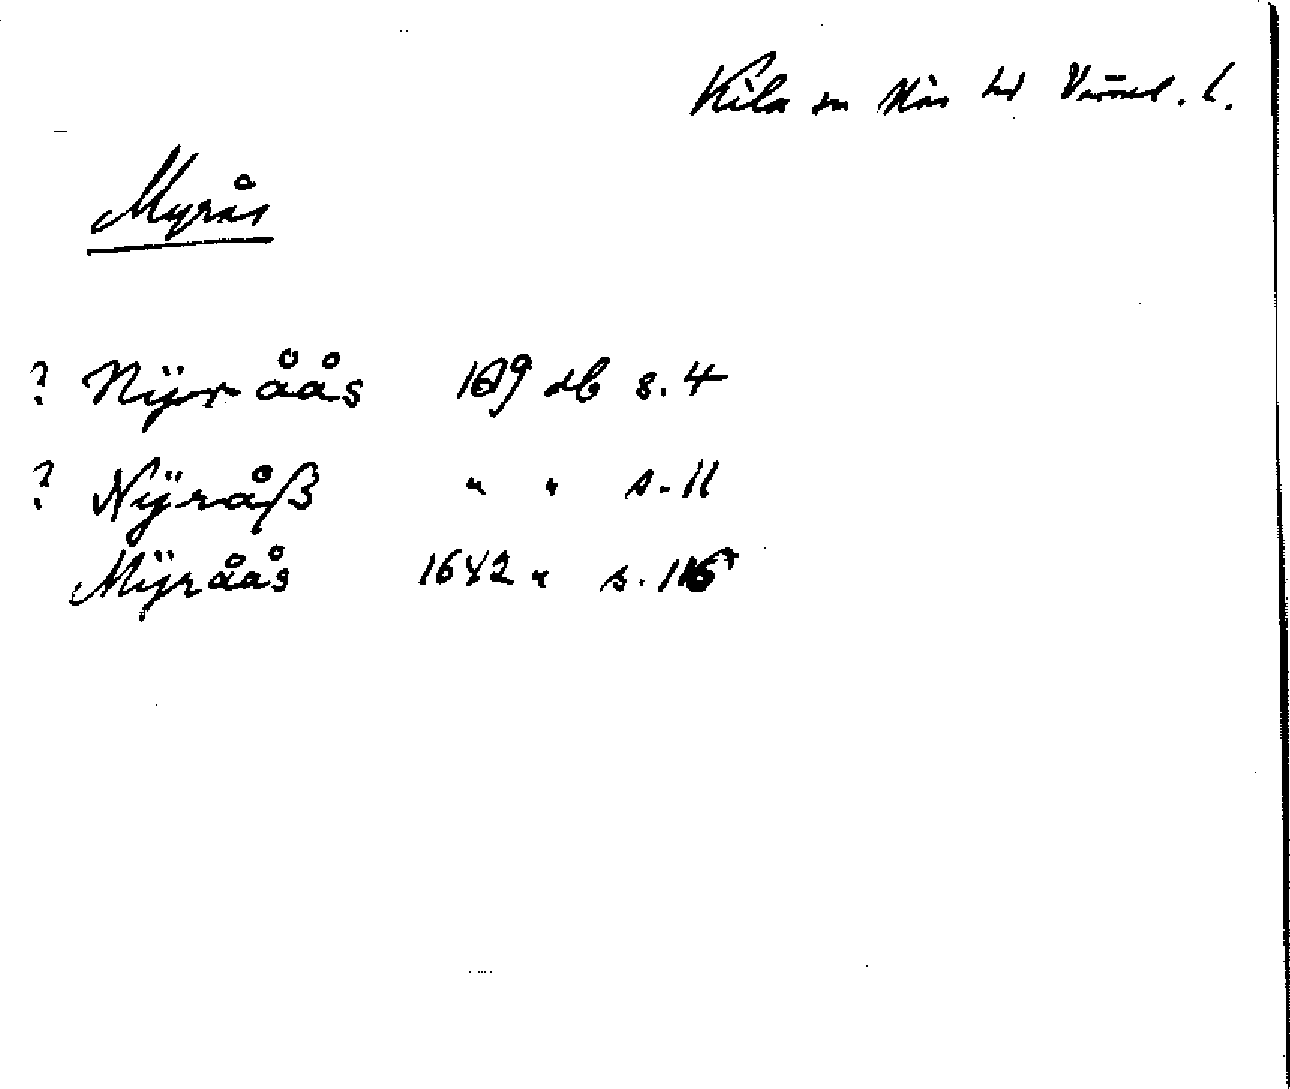 Kila sn Näs hd Värml. l.
Myrås
? Nÿr ååås
? Nÿråß " " s. 11
Mÿråås 1642 " s. 116